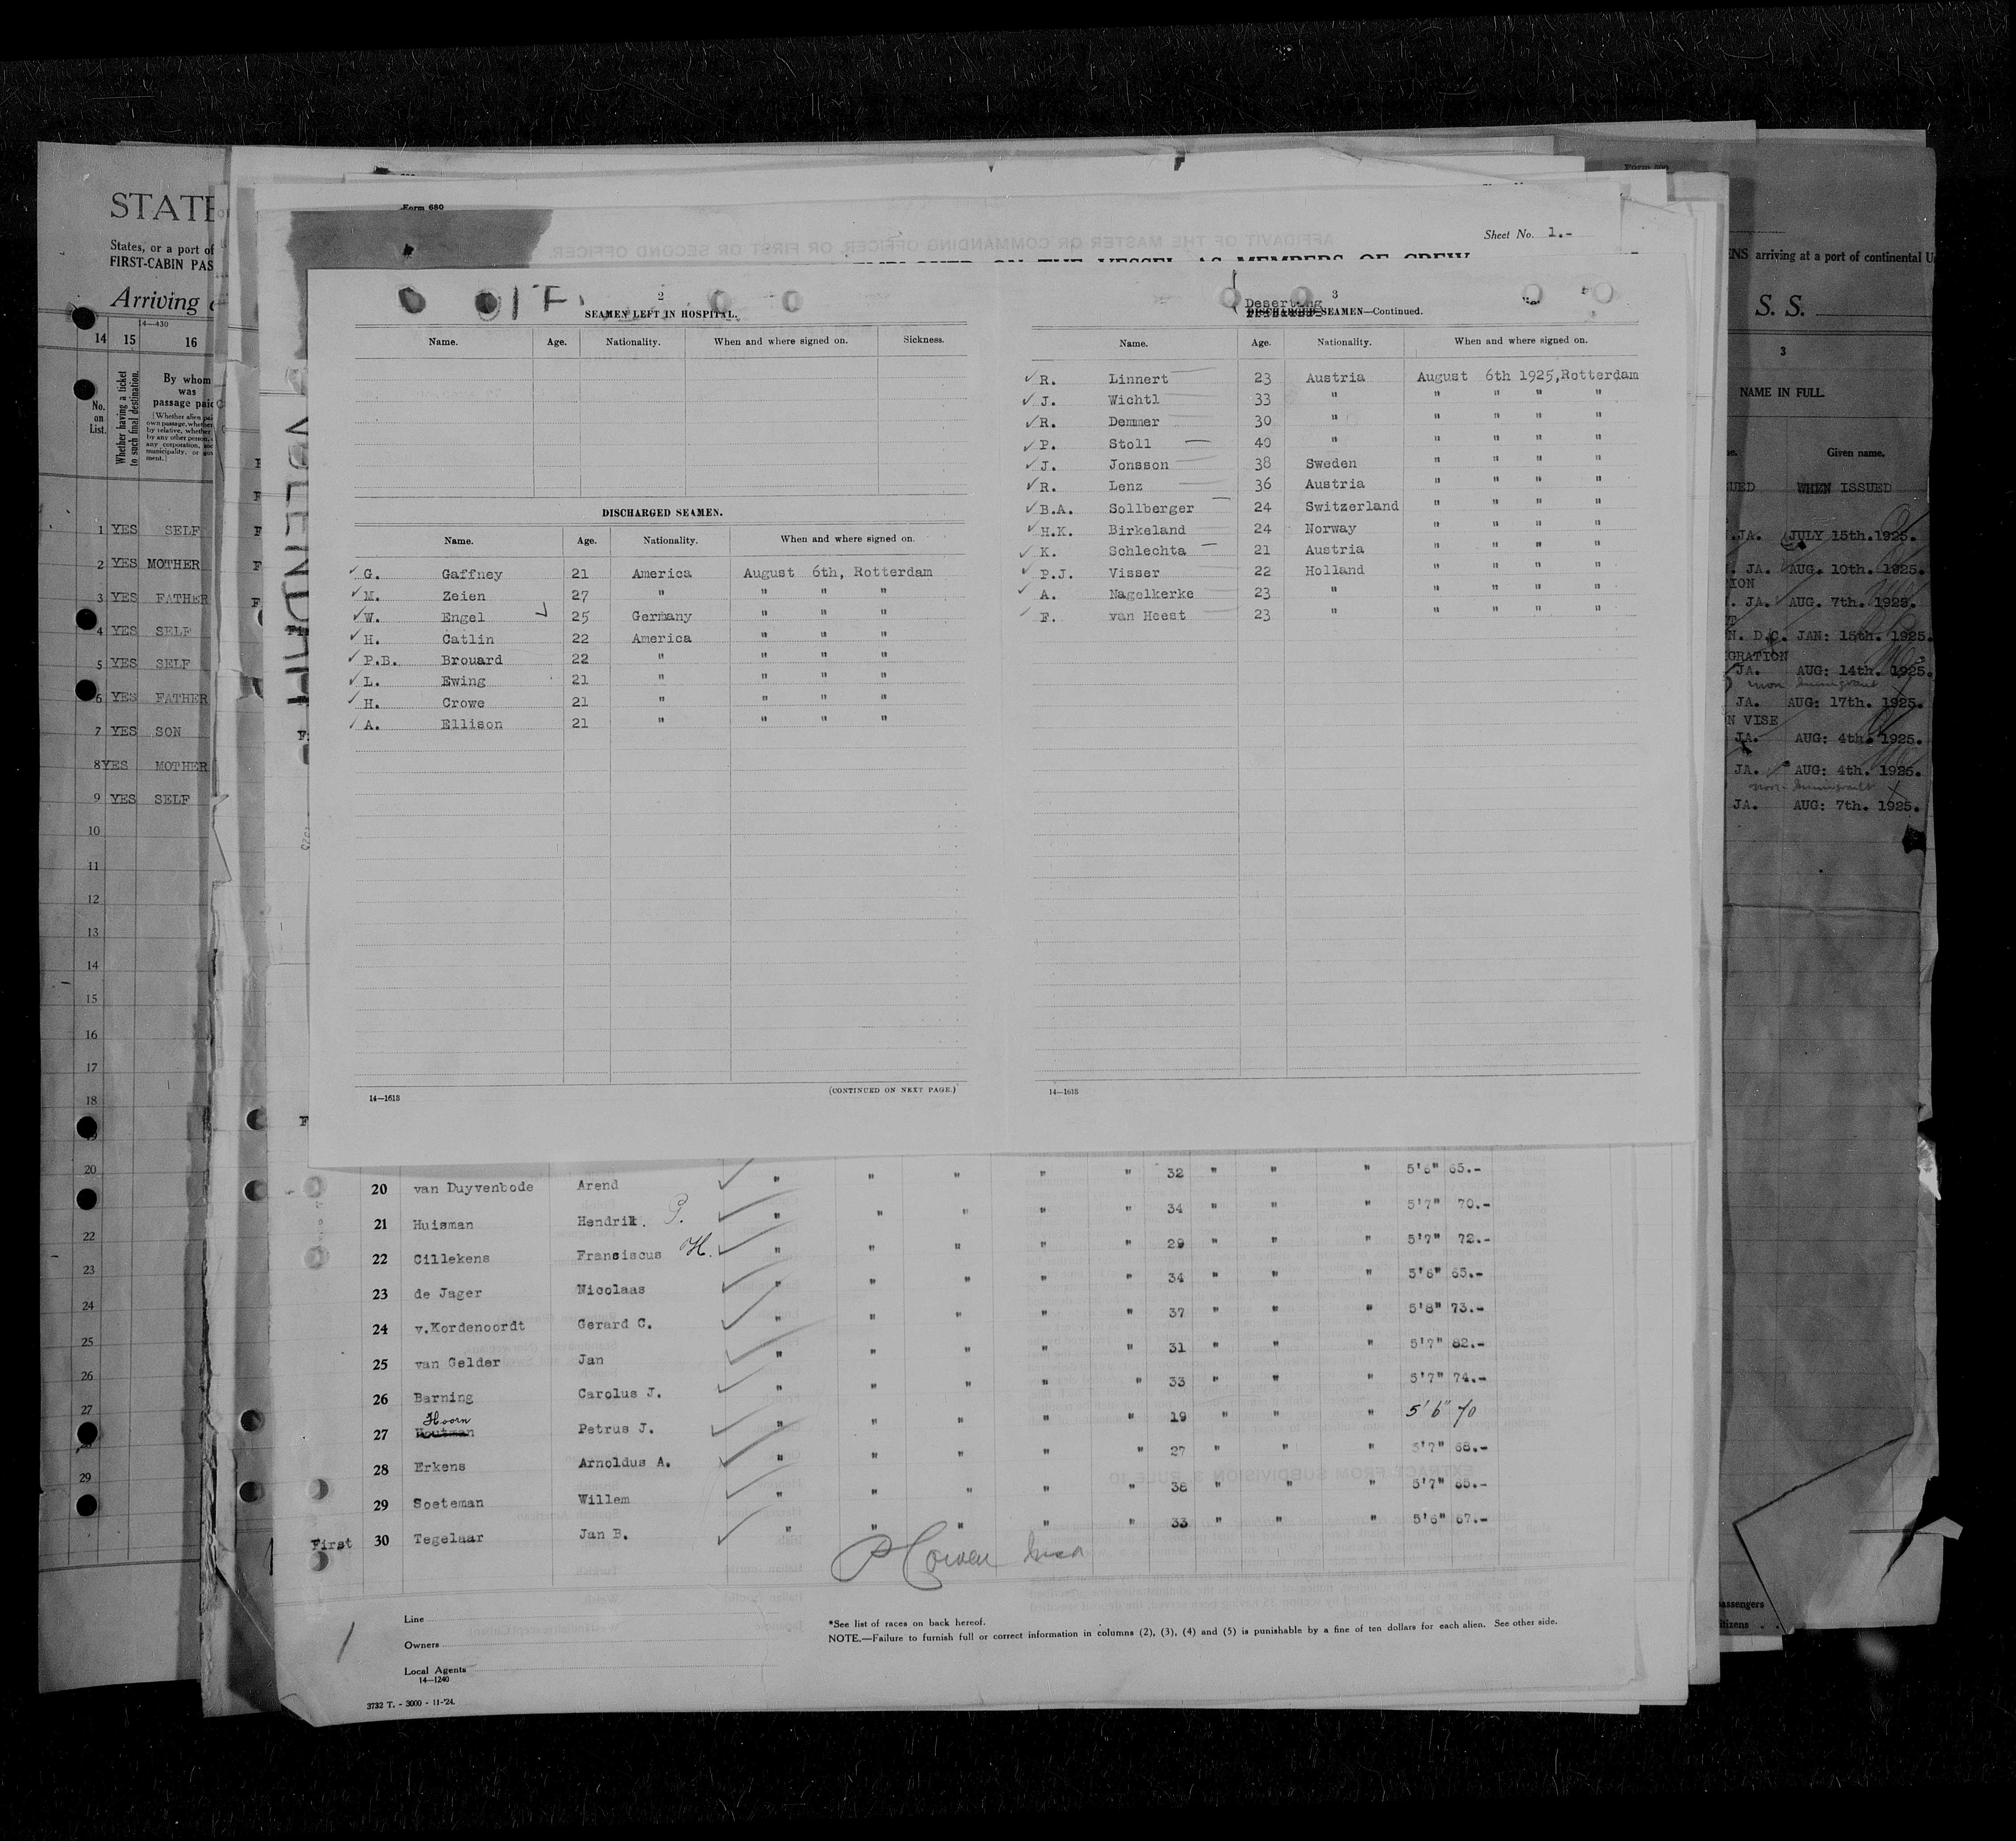 STATE
States, or a port of
FIRST-CABIN PAS
Arriving
14—430
14 15 16
No. on List.
Whether having a ticket to such final destination.
By whom was passage paid
1 YES SELF
2 YES MOTHER
3 YES FATHER
4 YES SELF
5 YES SELF
6 YES FATHER
7 YES SON
8 YES MOTHER
9 YES SELF
10
11
12
13
14
15
16
17
18
20
21
22
23
24
25
26
27
29
Form 680
Sheet No. 1.-
EMPLOYED ON THE VESSEL AS MEMBERS OF CREW
2
SEAMEN LEFT IN HOSPITAL.
Name. Age. Nationality. When and where signed on. Sickness.
DISCHARGED SEAMEN.
Name. Age. Nationality. When and where signed on.
G. Gaffney 21 America August 6th, Rotterdam
M. Zeien 27 " " " "
W. Engel 25 Germany " " "
H. Catlin 22 America " " "
P.B. Brouard 22 " " " "
L. Ewing 21 " " " "
H. Crowe 21 " " " "
A. Ellison 21 " " " "
14—1618
(CONTINUED ON NEXT PAGE.)
3
Deserting
DISCHARGED SEAMEN—Continued.
Name. Age. Nationality. When and where signed on.
R. Linnert 23 Austria August 6th 1925, Rotterdam
J. Wichtl 33 " " " " "
R. Demmer 30 " " " " "
P. Stoll 40 " " " " "
J. Jonsson 38 Sweden " " " "
R. Lenz 36 Austria " " " "
B.A. Sollberger 24 Switzerland " " " "
H.K. Birkeland 24 Norway " " " "
K. Schlechta 21 Austria " " " "
P.J. Visser 22 Holland " " " "
A. Nagelkerke 23 " " " " "
F. van Heest 23 " " " " "
14—1618
" " " " " 32 " " " 5'6" 65.-
20 van Duyvenbode Arend " " " " " 34 " " " 5'7" 70.-
21 Huisman Hendrik. P. " " " " " 29 " " " 5'7" 72.-
22 Cillekens Fransiscus H. " " " " " 34 " " " 5'6" 65.-
23 de Jager Nicolaas " " " " " 37 " " " 5'8" 73.-
24 v.Kordenoordt Gerard C. " " " " " 31 " " " 5'7" 82.-
25 van Gelder Jan " " " " " 33 " " " 5'7" 74.-
26 Barning Carolus J. " " " " " 19 " " " 5'6" 70
Hoorn
27 Houtman Petrus J. " " " " " 27 " " " 5'7" 68.-
28 Erkens Arnoldus A. " " " " " 38 " " " 5'7" 65.-
29 Soeteman Willem " " " " " 33 " " " 5'6" 67.-
First 30 Tegelaar Jan B.
Line
Owners
Local Agents
14—1240
3732 T. - 3000 - 11-'24.
*See list of races on back hereof.
NOTE.—Failure to furnish full or correct information in columns (2), (3), (4) and (5) is punishable by a fine of ten dollars for each alien. See other side.
arriving at a port of continental U
S. S.
3
NAME IN FULL.
Given name.
WHEN ISSUED
JA. JULY 15th.1925.
JA. AUG. 10th. 1925.
JA. AUG. 7th. 1925.
N. D.C. JAN: 15th. 1925.
GRATION
JA. AUG: 14th. 1925.
non immigrant
JA. AUG: 17th. 1925.
N VISE
JA. AUG: 4th. 1925.
JA. AUG: 4th. 1925.
non-immigrant
JA. AUG: 7th. 1925.